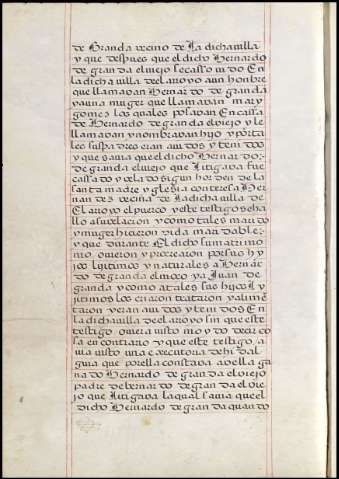 de Granda vecino de La dicha villa
y que despues que el dicho Hernardo
de granda el viejo se casso uido En
la dicha villa del arroyo a un hombre
que llamavan Hernardo de granda
y a una muger que llamavan mary
gomes los quales posavan En cassa
de Hernardo de granda el viejo y le
llamavan y nombravan hijo y por ta
les sus padres eran auidos y tenidos
y que savia que el dicho Hernardo
de granda el viejo que Litigava fue
cassado y velado sigun horden de la
santa madre yglesia con teresa Her
nandes vecina de La dicha villa de
El arroyo el puerco y este testigo se ha
llo a su velacion y como tales marido
y muger hicieron vida maridable
y que durante El dicho su matrimo
nio ovieron y procrearon por sus hy
jos ligitimos y naturales a Hernar
do de granda el moço ya Juan de
granda y como a tales sus hijos Ly
jitimos los criaron trataron y alime
taron y eran auidos y tenidos En
la dicha villa del arroyo sin que este
testigo oviera visto ni oydo decir co
sa en contrario y que este testigo a
via visto una executoria de hidal
guia que por ella constava avella ga
nado Hernardo de granda el viejo
padre del bernardo de granda el vie
jo que Litigava la qual savia que el
dicho Hernardo de granda quando